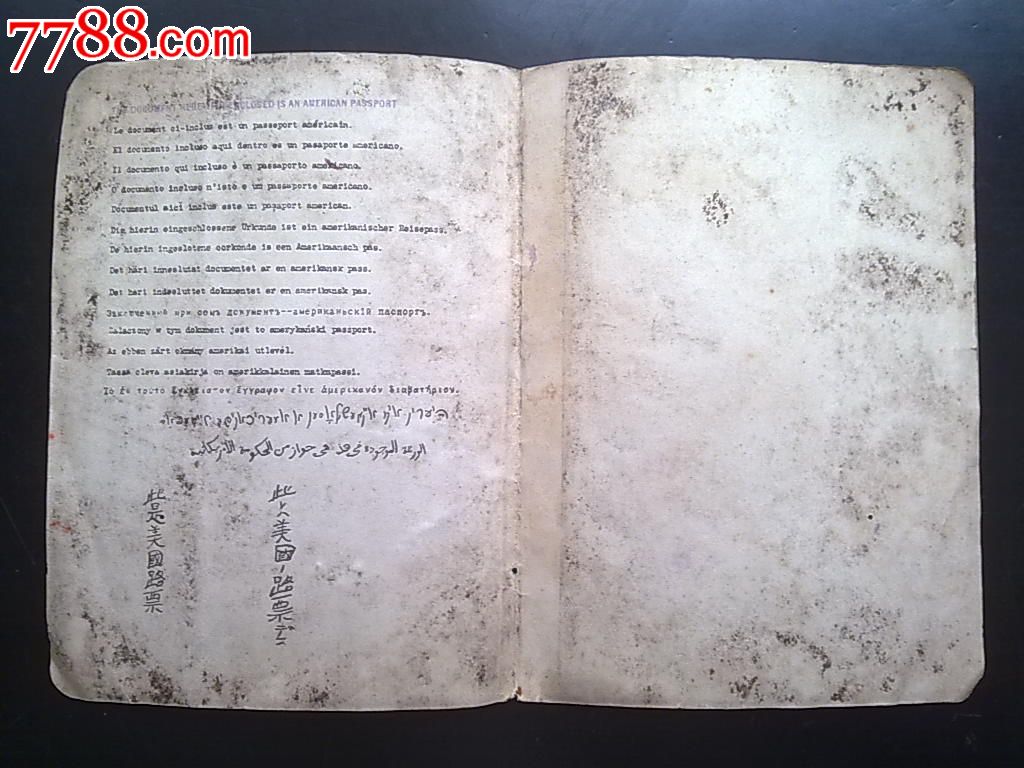 7788.com
THE DOCUMENT HEREWITH ENCLOSED IS AN AMERICAN PASSPORT
Le document ci-inclus est un passeport américain.
El documento incluso aqui dentro es un pasaporte americano.
Il documento qui incluso è un passaporto americano.
O documento incluso n'isto e um passaporte americano.
Documentul aici inclus este un pasaport american.
Die hierin eingeschlossene Urkunde ist ein amerikanischer Reisepass.
De hierin ingeslotene oorkonde is een Amerikaansch pas.
Det häri inneslutat documentet ar en amerikansk pass.
Det her indesluttet dokumentet er en amerikansk pas.
при семъ документъ--американьскій паспортъ.
Zalaczony w tym dokument jest to amerykański passport.
Az ebben zárt okmány amerikai utlevél.
Tassa oleva asiakirja on amerikkalainen matkapassi.
Τὸ ἐν τούτῳ ἔγγραφον εἶνε ἀμερικανόν διαβατήριον.
الموجودة في
此 美國 路票
此是美國路票